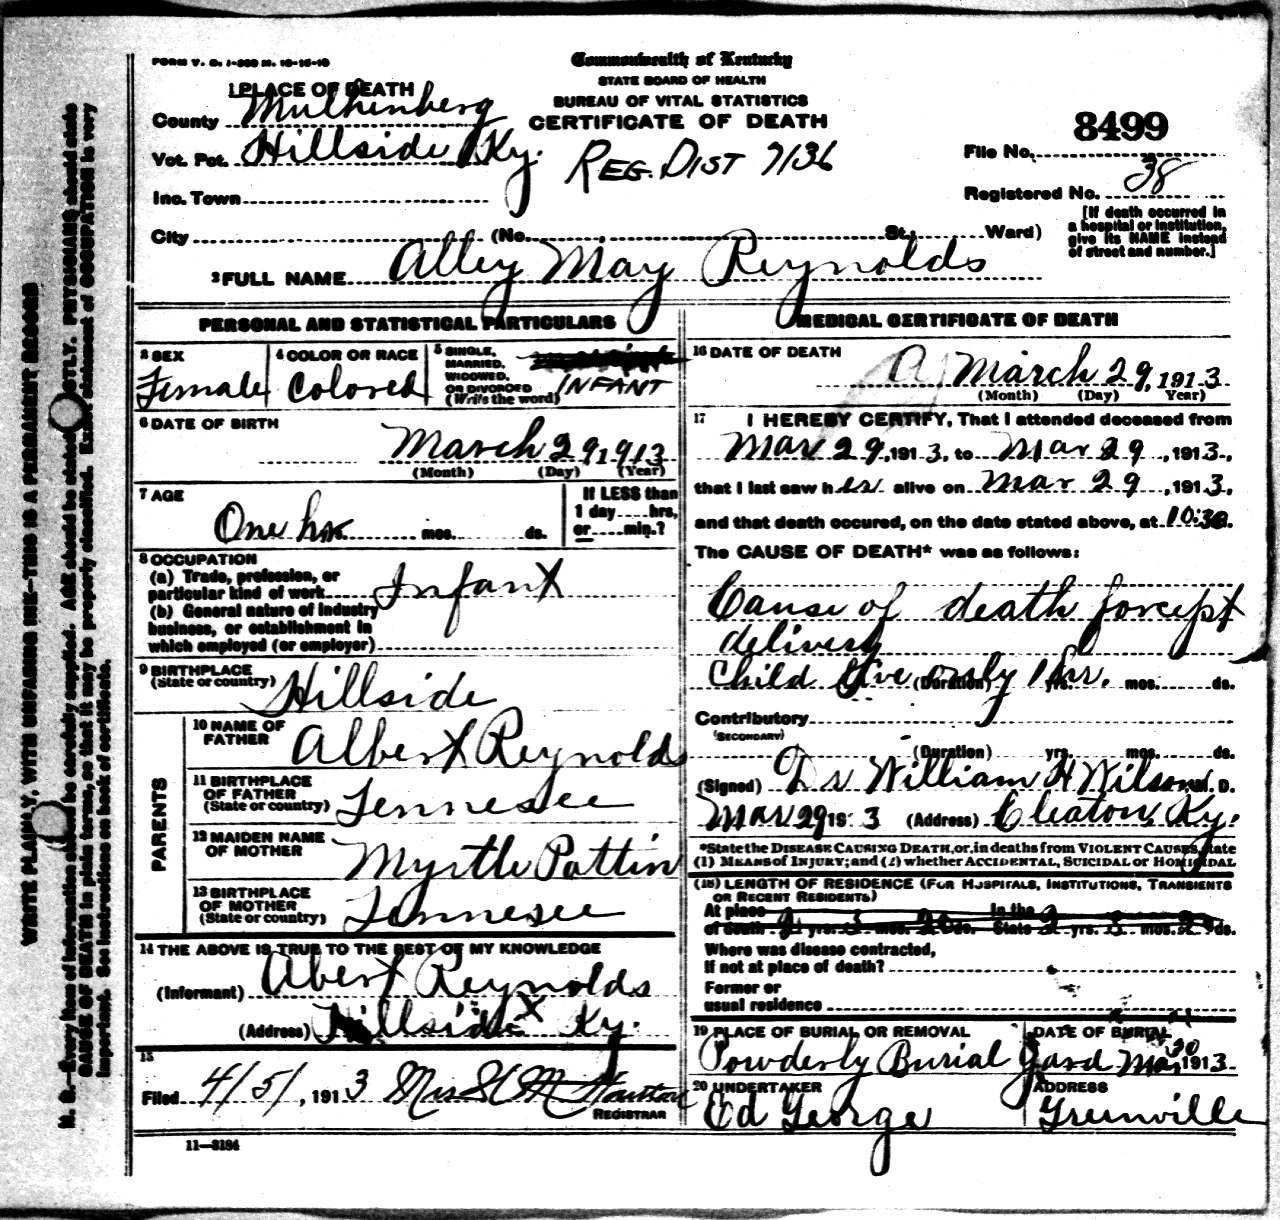 FORM V. S. 1-500 M. 10-16-10
Commonwealth of Kentucky
STATE BOARD OF HEALTH
BUREAU OF VITAL STATISTICS
CERTIFICATE OF DEATH
1 PLACE OF DEATH
County Mulhenberg
Vot. Pct. Hillside Ky.
REG. DIST 7136
Inc. Town
City (No. St.; Ward)
8499
File No.
Registered No. 38
[If death occurred in
a hospital or institution,
give its NAME instead
of street and number.]
2 FULL NAME Alley May Reynolds
PERSONAL AND STATISTICAL PARTICULARS
3 SEX
Female
4 COLOR OR RACE
Colored
5 SINGLE,
MARRIED,
WIDOWED,
OR DIVORCED
(Write the word)
INFANT
6 DATE OF BIRTH
March 29, 1913
(Month) (Day) (Year)
7 AGE
One hr. mos. ds.
If LESS than
1 day hrs,
or min.?
8 OCCUPATION
(a) Trade, profession, or
particular kind of work Infant
(b) General nature of industry
business, or establishment in
which employed (or employer)
9 BIRTHPLACE
(State or country) Hillside
PARENTS
10 NAME OF
FATHER Albert Reynolds
11 BIRTHPLACE
OF FATHER
(State or country) Tennesee
12 MAIDEN NAME
OF MOTHER Myrtle Pattin
13 BIRTHPLACE
OF MOTHER
(State or country) Tennesee
14 THE ABOVE IS TRUE TO THE BEST OF MY KNOWLEDGE
(Informant) Abert Reynolds
(Address) Hillside X Ky.
15
Filed 4/5/, 1913 Mrs
REGISTRAR
11—3184
MEDICAL CERTIFICATE OF DEATH
16 DATE OF DEATH
March 29, 1913
(Month) (Day) Year)
17 I HEREBY CERTIFY, That I attended deceased from
Mar 29, 1913, to Mar 29, 1913,
that I last saw her alive on Mar 29, 1913,
and that death occured, on the date stated above, at 10:30
The CAUSE OF DEATH* was as follows:
Cause of death forcept
delivery
Child live only 1 hr.
(Duration) yrs. mos. ds.
Contributory
(SECONDARY)
(Duration) yrs. mos. ds.
(Signed) Dr William H Wilson M. D.
Mar 29 1913 (Address) Cleaton, Ky.
*State the DISEASE CAUSING DEATH, or, in deaths from VIOLENT CAUSES, state
(1) MEANS OF INJURY; and (2) whether ACCIDENTAL, SUICIDAL or HOMICIDAL
(18) LENGTH OF RESIDENCE (FOR HOSPITALS, INSTITUTIONS, TRANSIENTS
OR RECENT RESIDENTS)
At place In the
of death yrs. mos. ds. State 2 yrs. 3 mos. ds.
Where was disease contracted,
If not at place of death?
Former or
usual residence
19 PLACE OF BURIAL OR REMOVAL
Powderly Burial Yard
DATE OF BURIAL
Mar 30 1913
20 UNDERTAKER
Ed George
ADDRESS
Greenville
WRITE PLAINLY, WITH UNFADING INK—THIS IS A PERMANENT RECORD
N. B.—Every item of information should be carefully supplied. AGE should be stated EXACTLY. PHYSICIANS should state
CAUSE OF DEATH in plain terms, so that it may be properly classified. Exact statement of OCCUPATION is very
important. See instructions on back of certificate.